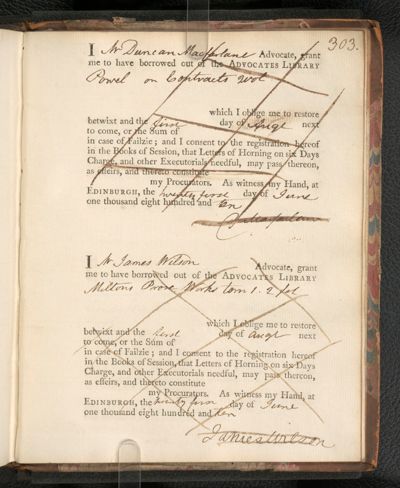 303.
I Mr Duncan Macfarlane Advocate, grant
me to have borrowed out of the ADVOCATES LIBRARY
Powel on Contracts 2vol
which I oblige me to restore
betwixt and the first day of Augt next
to come, or the Sum of
in case of Failzie; and I consent to the registration hereof
in the Books of Session, that Letters of Horning on six Days
Charge, and other Executorials needful, may pass thereon,
as effeirs, and thereto constitute
my Procurators. As witness my Hand, at
EDINBURGH, the twenty first day of June
one thousand eight hundred and ten
I Mr James Wilson Advocate, grant
me to have borrowed out of the ADVOCATES LIBRARY
Miltons Prose Works tom 1. 2 fol
which I oblige me to restore
betwixt and the first day of Augt next
to come, or the Sum of
in case of Failzie; and I consent to the registration hereof
in the Books of Session, that Letters of Horning on six Days
Charge, and other Executorials needful, may pass thereon,
as effeirs, and thereto constitute
my Procurators. As witness my Hand, at
EDINBURGH, the twenty first day of June
one thousand eight hundred and ten
James Wilson